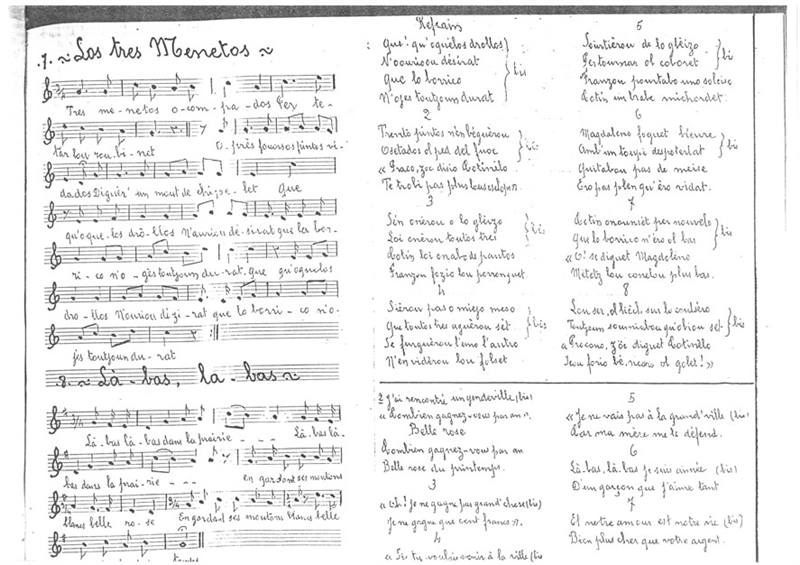 .7. ~ Los tres Menetos ~
Tres me-netos o-com-pa-dos Per te-
tar lou rou-bi-net O-près fouosos pintos vi-
dados Diguèr' un mout de let Que
qu'oque-los drôl-los N'auriou dé-sirat que la bor-
ri-co n'o-gès toutjoun du-rat. que qu'oquelos
dro-llos N'ouriou dizi-rat que lo borri-co n'o-
gès toutjoun du-rat
.8. ~ Là-bas, la-bas ~
Là-bas là-bas dans la prairie - - - - Là-bas là-
bas dans la prai-rie - - - en gardant ses moutons
blancs belle ro-se En gardant ses moutons blancs belle
Refrain
Que! qu'oquelos drollos
N'oouriou désirat
Que lo borrico
N'oges toutjoun durat
bis
2
Trento pintos n'en béguèrou
Ocetados ol ped del fuoc
« Praco, zòc disio Cotinèlo
Te trobi pas plus
bis
3
S'en onèrou o lo glèizo
Loi onèrou toutos tres
Cotin loi onabo de pautos
Franzou fozio lou
bis
4
Sièrou pas o miejo meso
Que toutos tres oguèrou sèt
Se furguèrou l'uno l'autro
N'en vidèrou lou folset
bis
5
Sourtièrou de lo glèizo
Per tournar ol coboret
Franzou pourtabo uno soleiso
Cotin un trabe michordet.
bis
6
Magdaleno foguet bieure
Amb'un toupi despoterlat
Quitabou pas de mèise
Ero pas plen qu'èro vidat.
bis
7
Cotin onounièt per nouvelo
Que lo borrico n'èro ol bas
« O! se diguet Magdolèno
Metetz lou conelou plus bas.
bis
8
Lou ser, ol lièch, sur lo coulièro
Toutjoun soumiabou qu'obiou set
« Pocono, zòc diguet Cotinèlo
Ieu forio bè, ol golet! »
bis
2 J'ai rencontré un gendeville (bis)
« Combien gagnez-vous par an ».
Belle rose
Combien gagnez-vous par an
Belle rose du printemps.
3
« Oh! je ne gagne pas grand'chose (bis)
Je ne gagne que cent francs ».
4
« Si tu voulais venir à la ville (bis
5
« Je ne vais pas à la grand'ville (bis)
Car ma mère me le défend.
6
Là-bas, là-bas je suis aimée (bis)
D'un garçon que j'aime tant
7
Et notre amour est notre vie (bis)
Bien plus cher que votre argent.